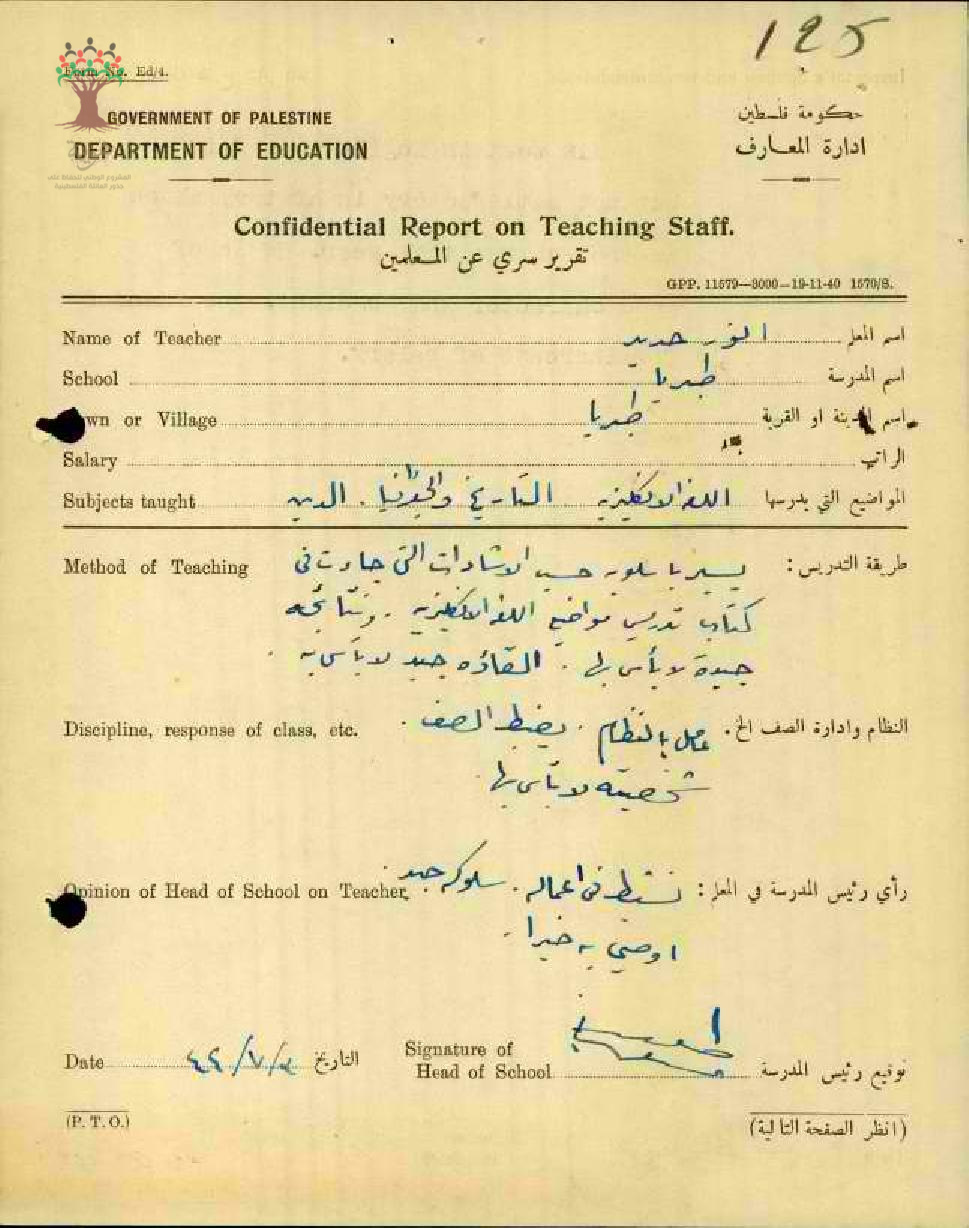 125
Form No. Ed/4.
GOVERNMENT OF PALESTINE
حكومة فلسطين
DEPARTMENT OF EDUCATION
ادارة المعارف
المشروع الوطني للحفاظ على
جذور العائلة الفلسطينية
Confidential Report on Teaching Staff.
تقرير سري عن المعلمين
GPP. 11579—3000—19-11-40 1570/S.
Name of Teacher انور حديد اسم المعلم
School طبريا اسم المدرسة
Town or Village طبريا اسم المدينة او القرية
Salary الراتب
Subjects taught اللغة الانكليزيه التاريخ والجغرافيا. الدين المواضيع التي يدرسها
Method of Teaching يسير باسلوبه حسب الاشادات التي جاءت في طريقة التدريس:
كتاب تدريس مواضيع اللغة الانكليزيه . ونتائجه
جيدة لا بأس بها . القاؤه جيد لا بأس به .
Discipline, response of class, etc. عامل بالنظام . يضبط الصف . النظام وادارة الصف الخ.
شخصيته لا بأس بها .
Opinion of Head of School on Teacher. نشيط في اعماله . سلوكه جيد . رأي رئيس المدرسة في المعلم:
اوصي به خيرا .
Date ٤٢/٧/٢ التاريخ
Signature of
Head of School توقيع رئيس المدرسة
(P. T. O.)
(انظر الصفحة التالية)